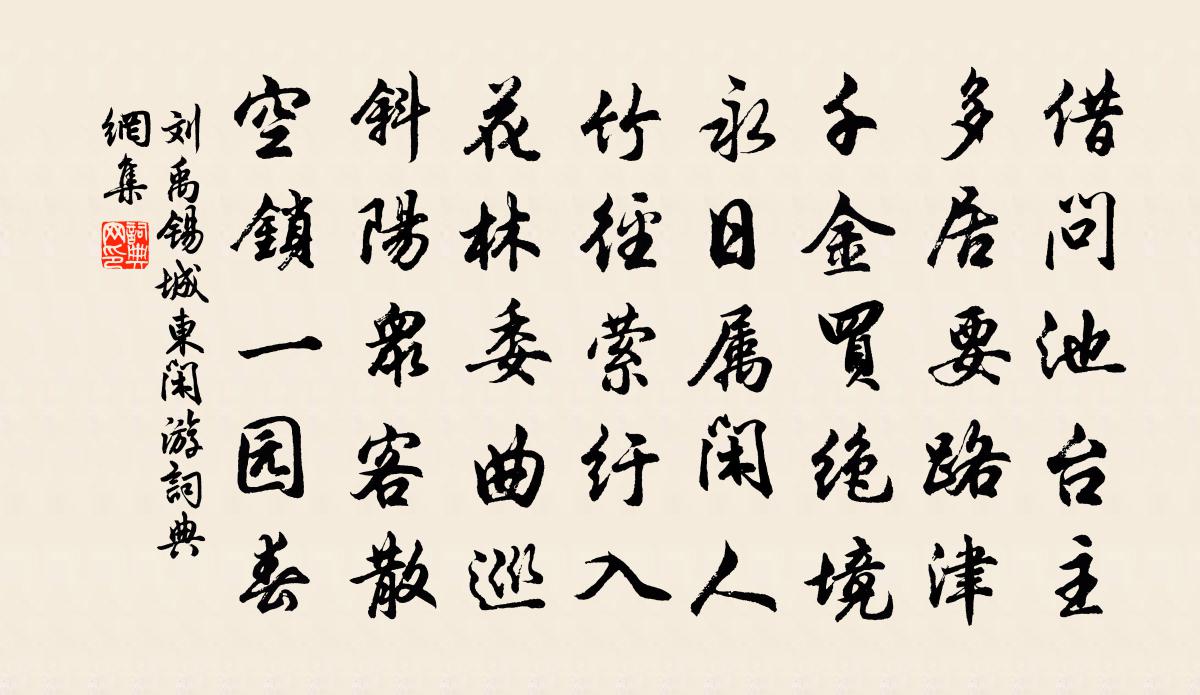 借问池台主
多居要路津
千金買绝境
永日属闲人
竹徑萦纡入
花林委曲巡
斜陽衆客散
空鎖一园春
刘禹锡城東闲游詞典
網集
詞典
网印